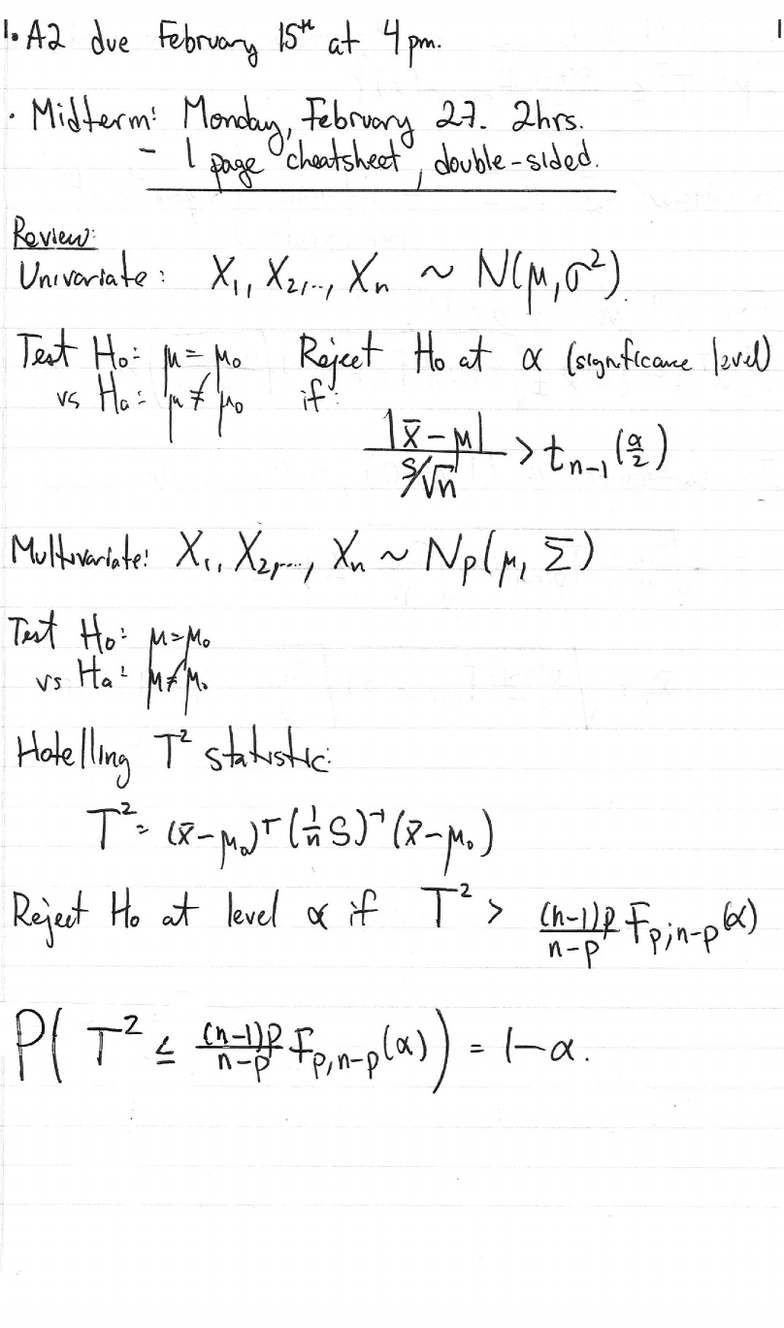 1. A2 due February 15th at 4pm. 1
· Midterm: Monday, February 27. 2hrs.
- 1 page cheatsheet, double-sided.
Review:
Univariate: X₁, X₂,.., Xₙ ~ N(μ, σ²).
Test H₀: μ = μ₀ Reject H₀ at α (significance level)
vs Hₐ: μ ≠ μ₀ if:
|x̄ - μ| / (s/√n) > tₙ₋₁(α/2)
Multivariate: X₁, X₂,..., Xₙ ~ Nₚ(μ, Σ)
Test H₀: μ = μ₀
vs Hₐ: μ ≠ μ₀
Hotelling T² statistic:
T² = (x̄ - μ₀)ᵀ (1/n S)⁻¹ (x̄ - μ₀)
Reject H₀ at level α if T² > (n-1)p/(n-p) F_{p;n-p}(α)
P( T² ≤ (n-1)p/(n-p) F_{p,n-p}(α) ) = 1-α.